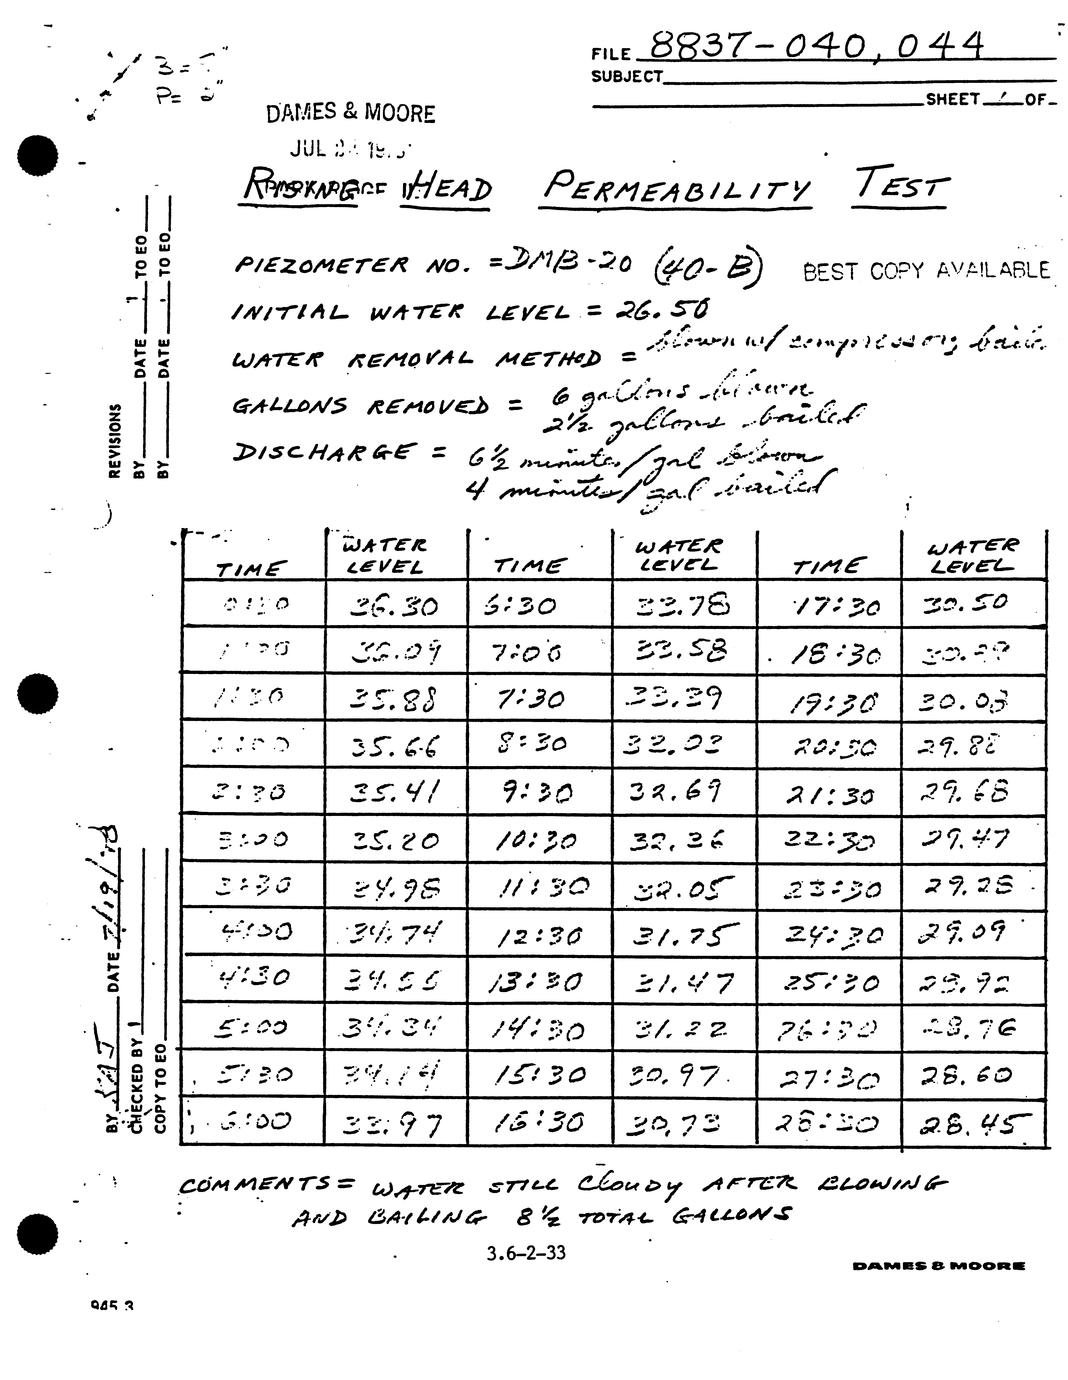 FILE 8837-040, 044
SUBJECT
SHEET 1 OF
3 =
P= 2"
DAMES & MOORE
JUL 24 19
RISING HEAD PERMEABILITY TEST
PIEZOMETER NO. = DMB-20 (40-B)
BEST COPY AVAILABLE
INITIAL WATER LEVEL = 26.50
WATER REMOVAL METHOD = blown w/ compressor, baile
GALLONS REMOVED = 6 gallons blown
2½ gallons bailed
DISCHARGE = 6½ minutes/gal blown
4 minutes/gal bailed
REVISIONS
BY DATE TO EO
BY DATE TO EO
TIME WATER LEVEL TIME WATER LEVEL TIME WATER LEVEL
36.30 6:30 33.78 17:30 30.50
36.09 7:00 33.58 18:30 30.29
1:30 35.88 7:30 33.39 19:30 30.08
35.66 8:30 33.03 20:30 29.88
35.41 9:30 32.69 21:30 29.68
3:00 35.20 10:30 32.36 22:30 29.47
3:30 34.98 11:30 32.05 23:30 29.28
4:00 34.74 12:30 31.75 24:30 29.09
4:30 34.56 13:30 31.47 25:30 28.92
5:00 34.34 14:30 31.22 26:30 28.76
5:30 34.14 15:30 30.97 27:30 28.60
6:00 33.97 16:30 30.73 28:30 28.45
BY DATE 7/19/78
CHECKED BY
COPY TO EO
COMMENTS = WATER STILL CLOUDY AFTER BLOWING
AND BAILING 8½ TOTAL GALLONS
3.6-2-33
DAMES & MOORE
945.3